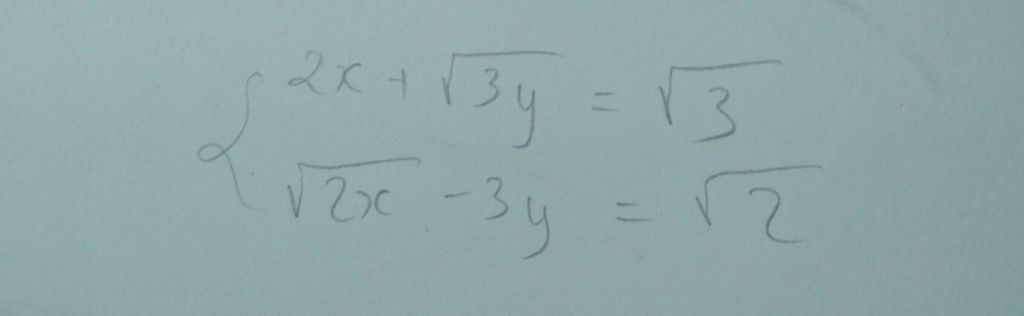 2x + √(3y) = √3
√(2x) - 3y = √2